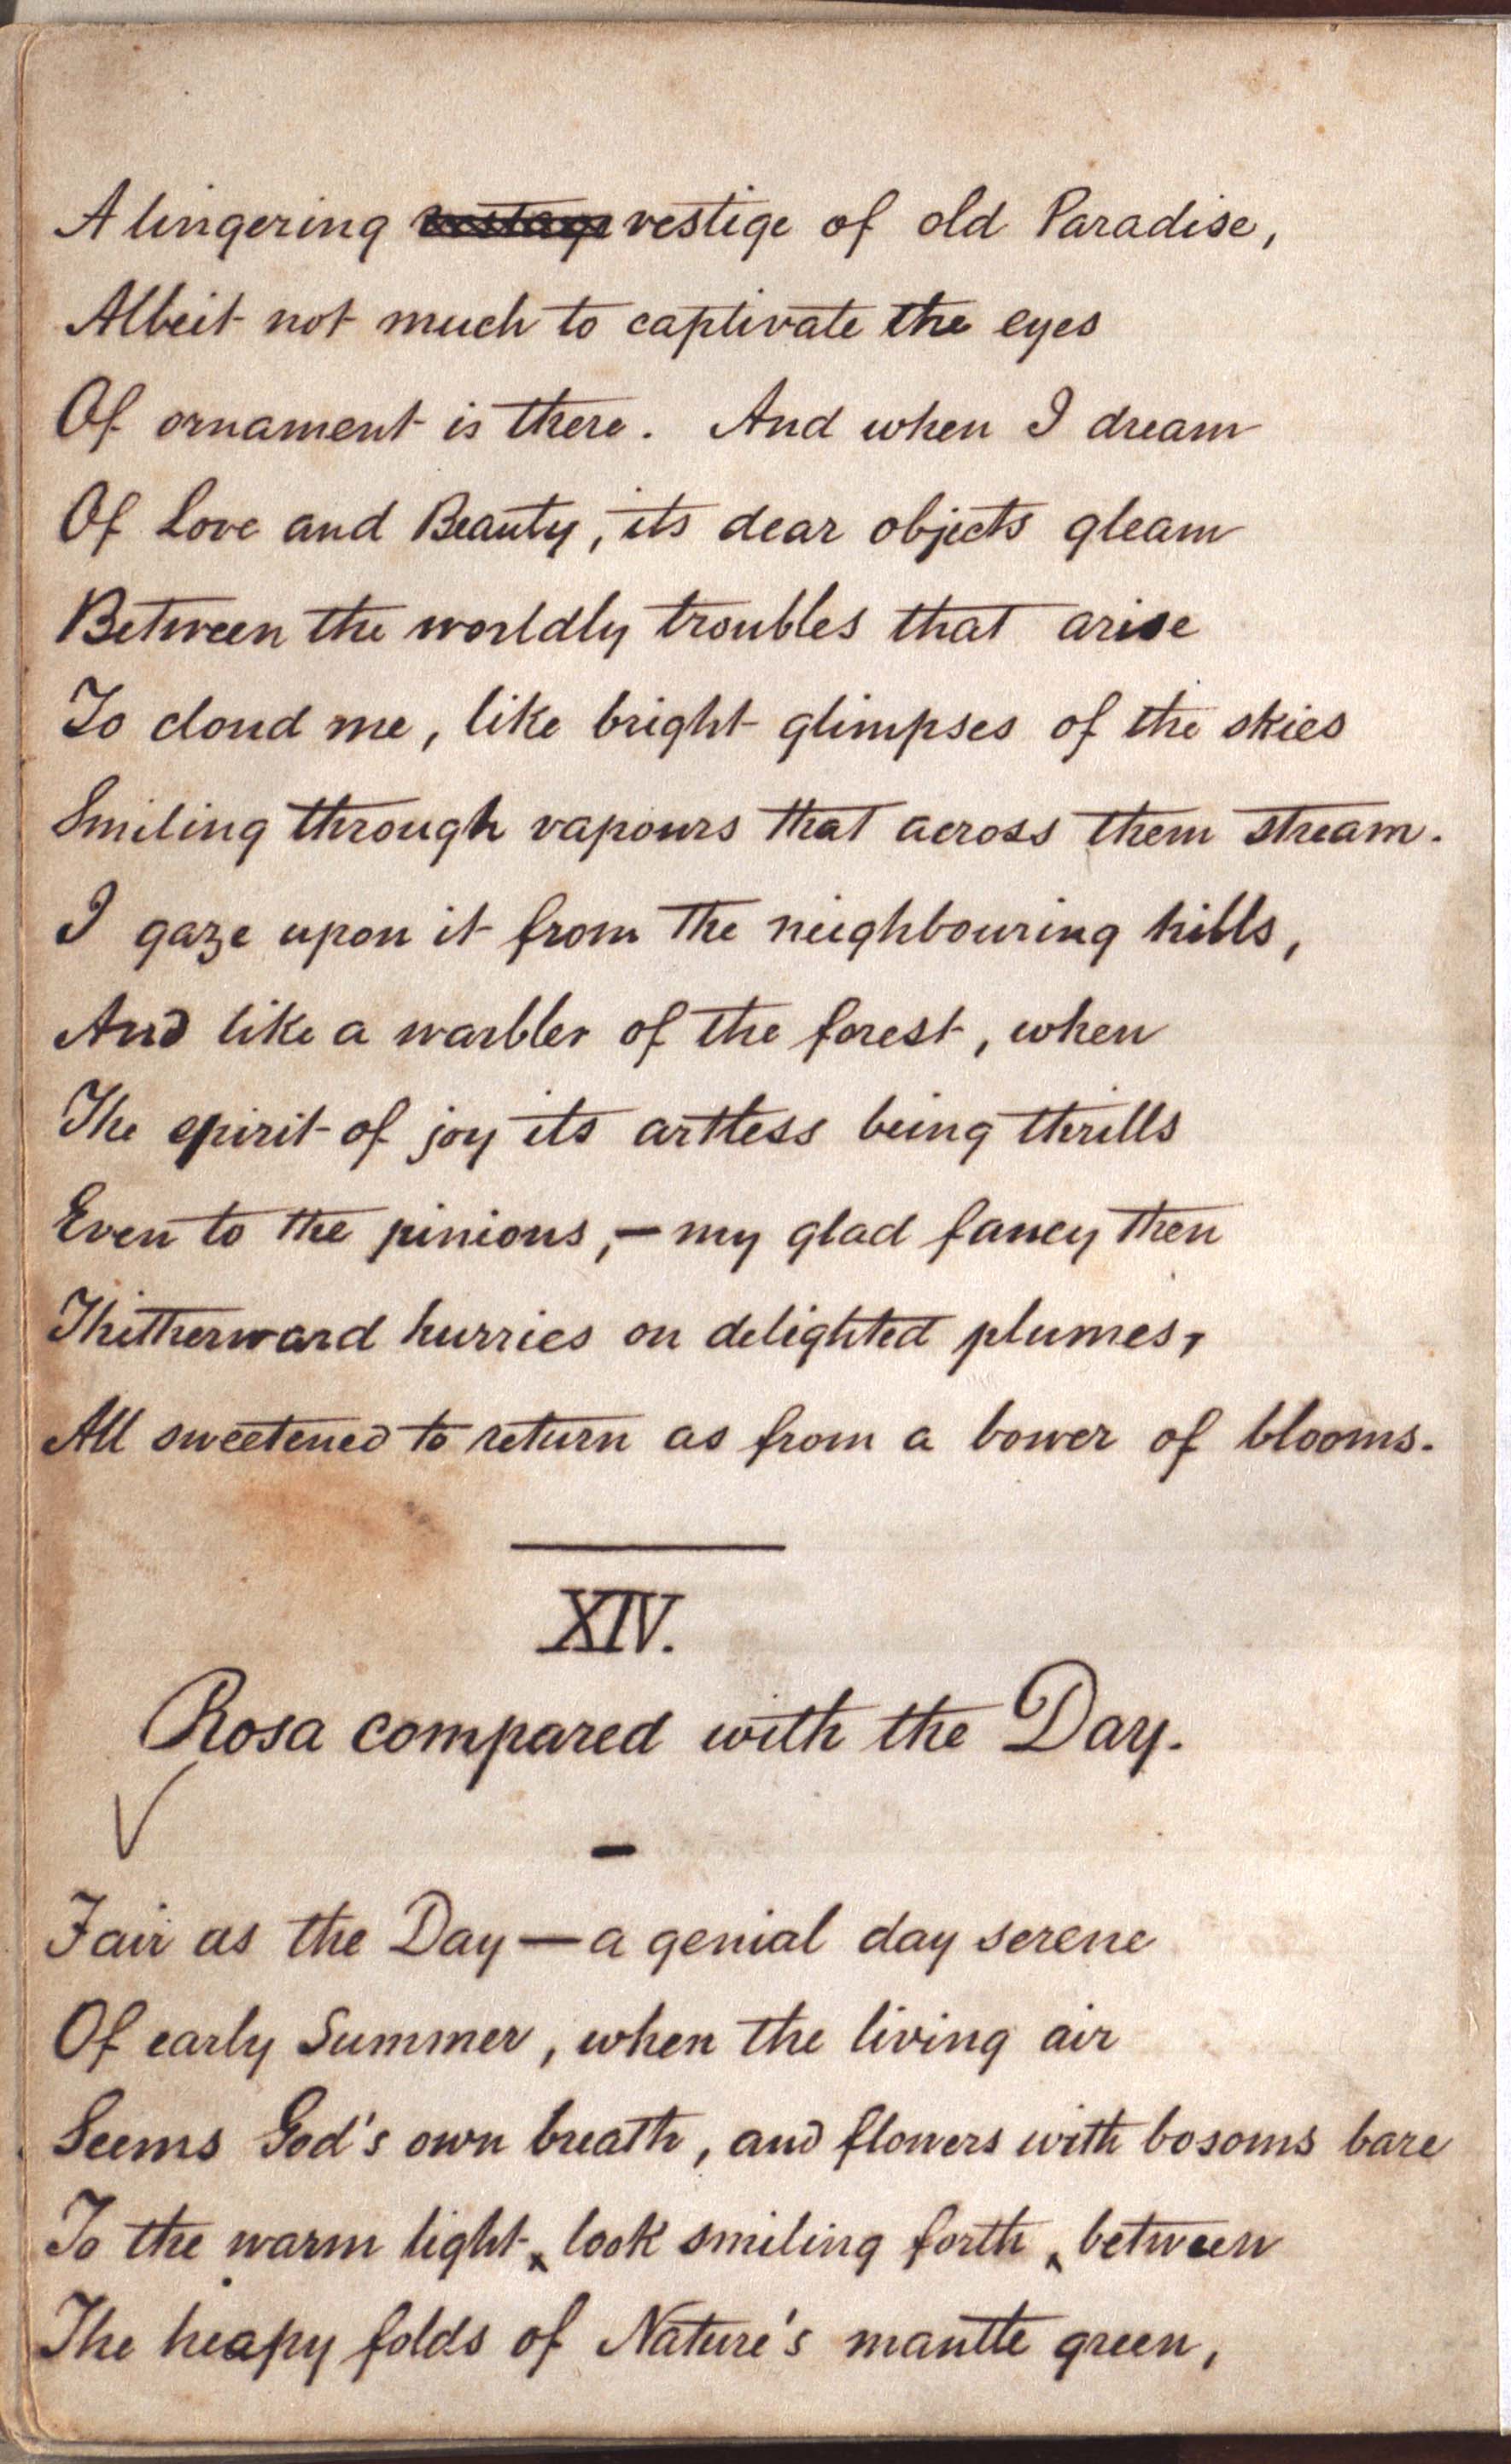 A lingering vestige of old Paradise,
Albeit not much to captivate the eyes
Of ornament is there. And when I dream
Of Love and Beauty, its dear objects gleam
Between the worldly troubles that arise
To cloud me, like bright glimpses of the skies
Smiling through vapours that across them stream.
I gaze upon it from the neighbouring hills,
And like a warbler of the forest, when
The spirit of joy its artless being thrills
Even to the pinions,— my glad fancy then
Thitherward hurries on delighted plumes,
All sweetened to return as from a bower of blooms.
XIV.
Rosa compared with the Day.
Fair as the Day — a genial day serene
Of early Summer, when the living air
Seems God's own breath, and flowers with bosoms bare
To the warm light, look smiling forth, between
The heapy folds of Nature's mantle green,